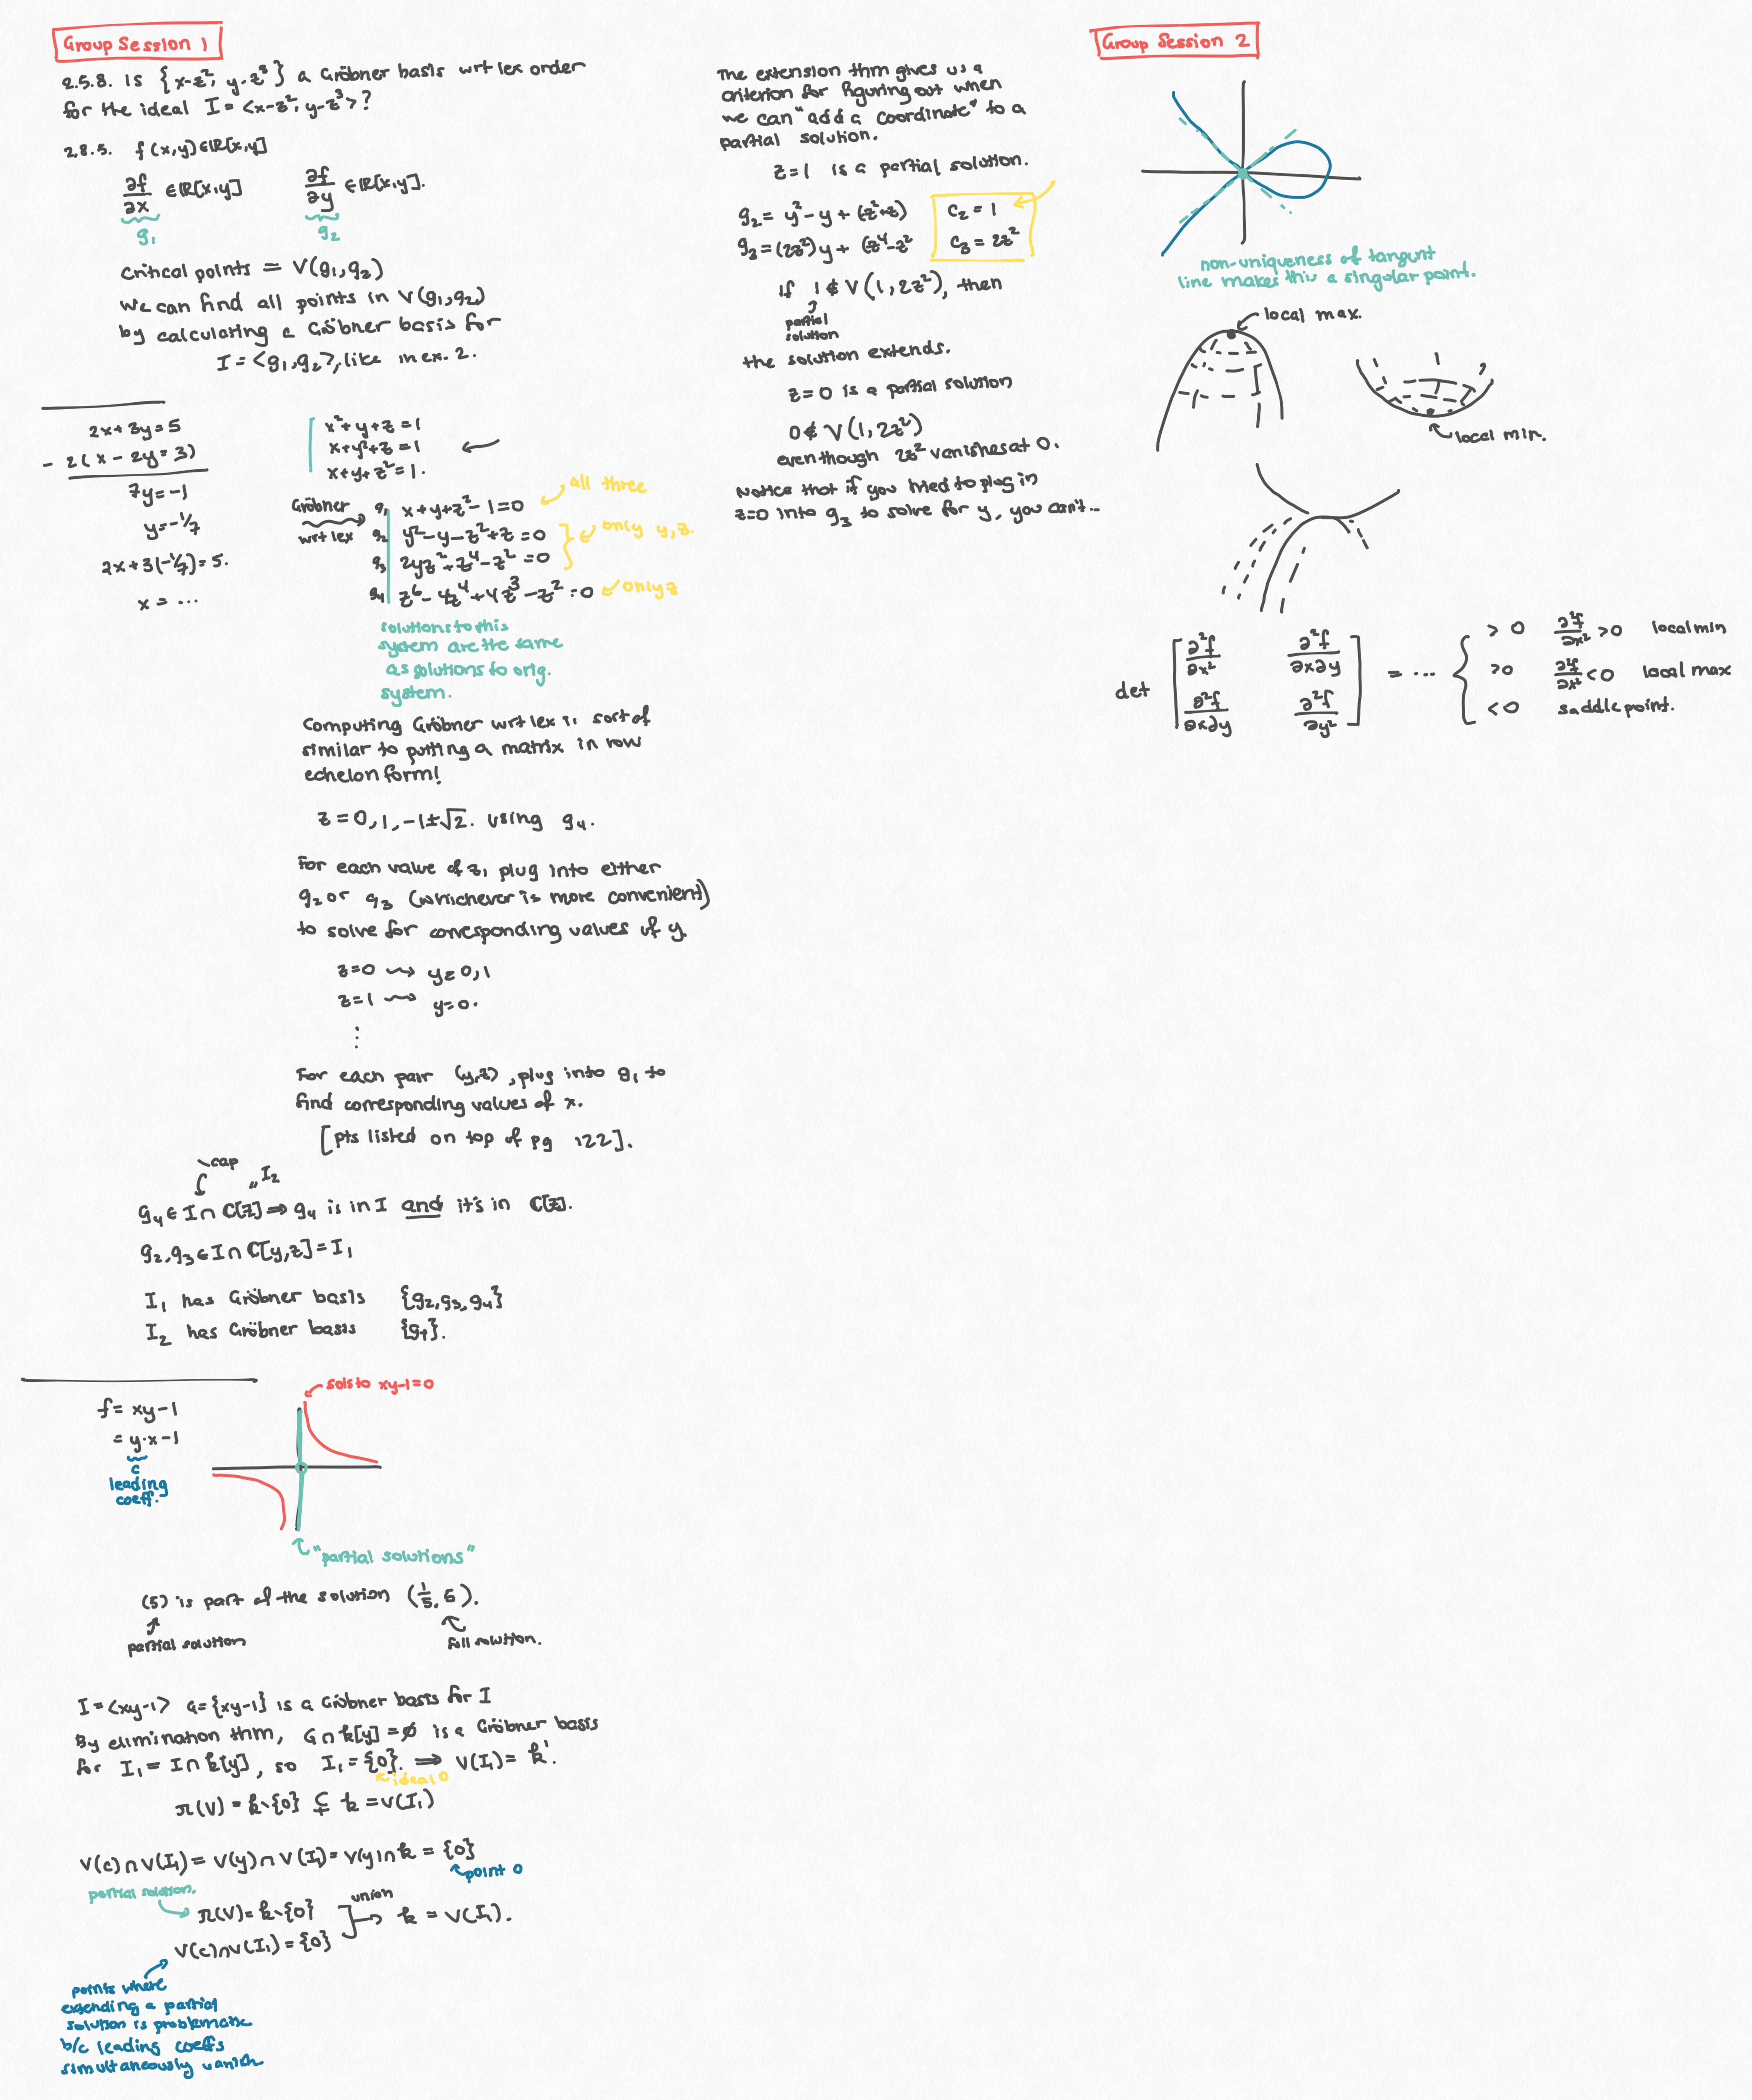 Group Session 1
2.5.8. Is {x-z², y-z³} a Gröbner basis wrt lex order
for the ideal I = <x-z², y-z³>?
2.8.5. f(x,y)∈ℝ[x,y]
∂f/∂x ∈ℝ[x,y] ∂f/∂y ∈ℝ[x,y].
g₁ g₂
Critical points = V(g₁,g₂)
we can find all points in V(g₁,g₂)
by calculating a Gröbner basis for
I = <g₁,g₂>, like in ex. 2.
2x+3y=5
- 2(x-2y=3)
7y=-1
y=-1/7
2x+3(-1/7)=5.
x = ...
x²+y+z=1
x+y²+z=1
x+y+z²=1.
Gröbner
wrt lex
g₁ x+y+z²-1=0
all three
g₂ y²-y-z²+z=0
g₃ 2yz²+z⁴-z²=0
only y,z.
g₄ z⁶-4z⁴+4z³-z²=0
only z
solutions to this
system are the same
as solutions to orig.
system.
Computing Gröbner wrt lex is sort of
similar to putting a matrix in row
echelon form!
z=0,1,-1±√2. using g₄.
For each value of z, plug into either
g₂ or g₃ (whichever is more convenient)
to solve for corresponding values of y.
z=0 ⇝ y=0,1
z=1 ⇝ y=0.
⋮
For each pair (y,z), plug into g₁ to
find corresponding values of x.
[pts listed on top of pg 122].
\cap
"I₂
g₄∈I∩ℂ[z]⇒g₄ is in I and it's in ℂ[z].
g₂,g₃∈I∩ℂ[y,z]=I₁
I₁ has Gröbner basis {g₂,g₃,g₄}
I₂ has Gröbner basis {g₄}.
sols to xy-1=0
f= xy-1
= y·x-1
c
leading
coeff.
"partial solutions"
(5) is part of the solution (1/5, 5).
partial solution
full solution.
I=<xy-1> G={xy-1} is a Gröbner basis for I
By elimination thm, G∩k[y]=∅ is a Gröbner basis
for I₁=I∩k[y], so I₁={0}. ⇒ V(I₁)= k¹.
ideal 0
π(V)=k∖{0} ⊊ k=V(I₁)
V(c)∩V(I₁)=V(y)∩V(I₁)=V(y)∩k={0}
point 0
partial solution.
π(V)=k∖{0}
union
k = V(I₁).
V(c)∩V(I₁)={0}
points where
extending a partial
solution is problematic
b/c leading coeffs
simultaneously vanish
The extension thm gives us a
criterion for figuring out when
we can "add a coordinate" to a
partial solution.
z=1 is a partial solution.
g₂= y²-y+(z²+z) c₂=1
g₃=(2z²)y+(z⁴-z² c₃=2z²
if 1∉V(1,2z²), then
partial
solution
the solution extends.
z=0 is a partial solution
0∉V(1,2z²)
even though 2z² vanishes at 0.
Notice that if you tried to plug in
z=0 into g₃ to solve for y, you can't...
Group Session 2
non-uniqueness of tangent
line makes this a singular point.
local max.
local min.
det [∂²f/∂x² ∂²f/∂x∂y
∂²f/∂x∂y ∂²f/∂y²] = ...
>0 ∂²f/∂x²>0 local min
>0 ∂²f/∂x²<0 local max
<0 saddle point.